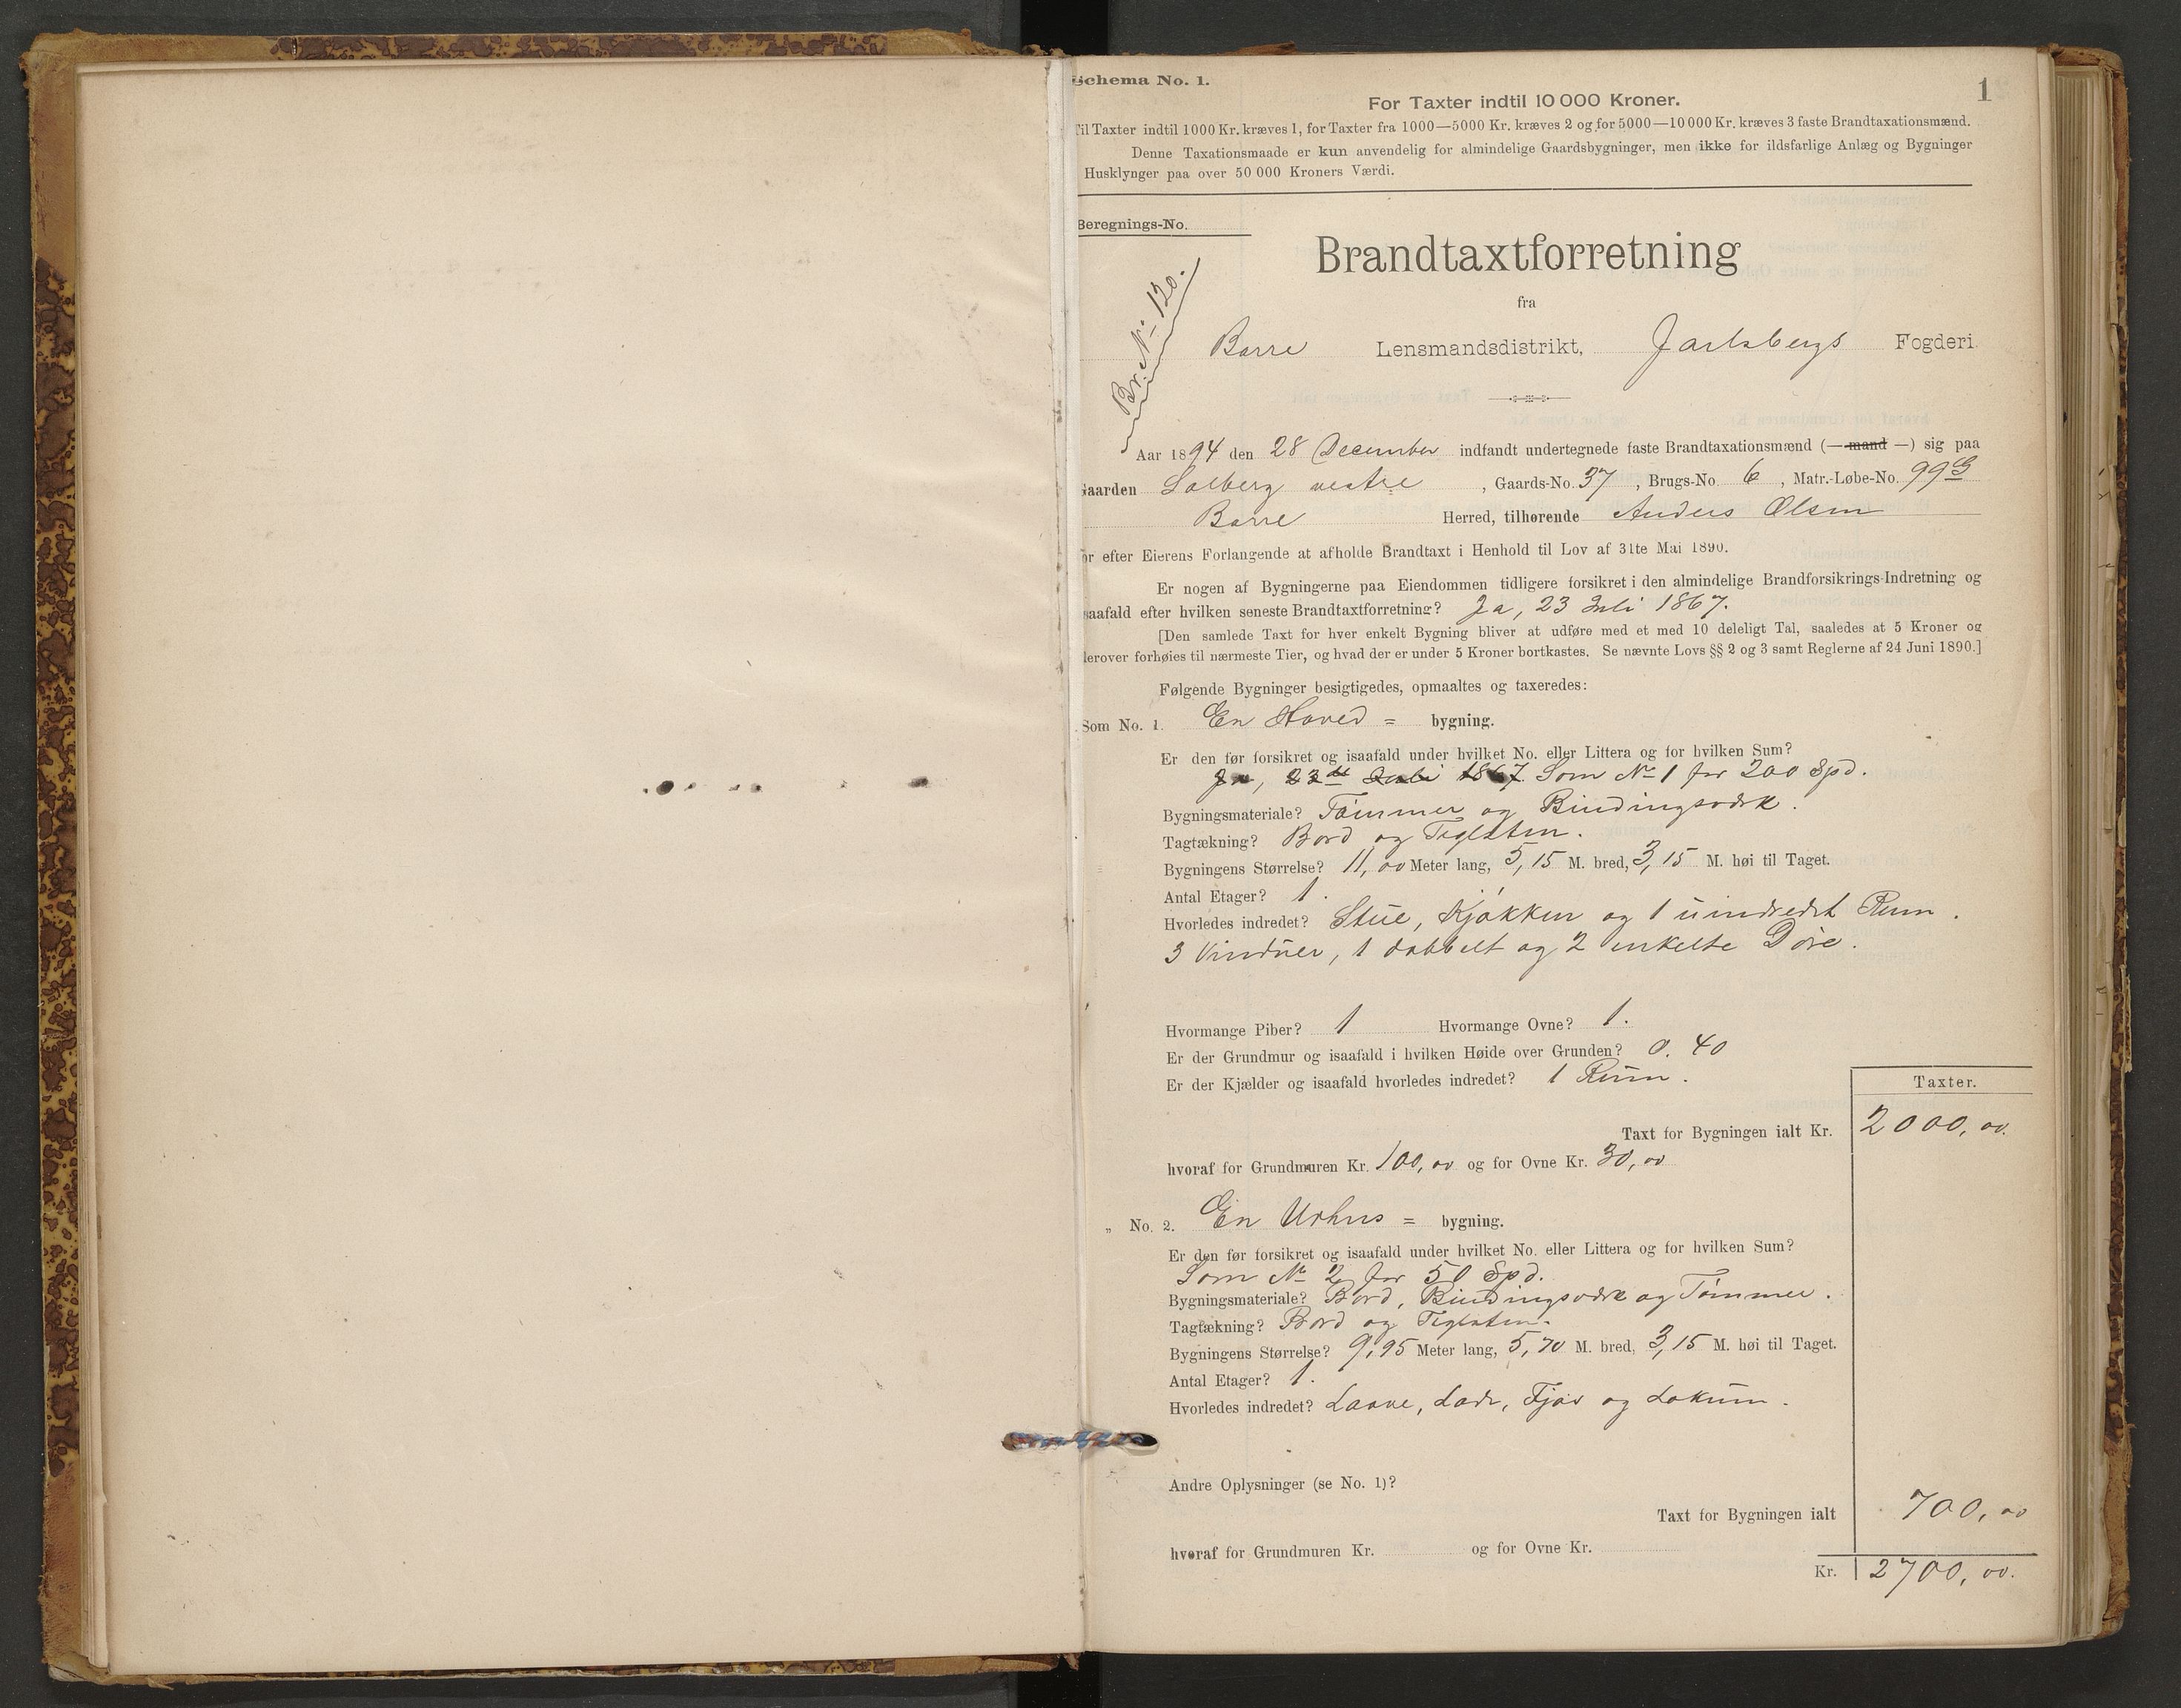 Schema No. 1.
1
For Taxter indtil 10 000 Kroner.
Til Taxter indtil 1000 Kr. kræves 1, for Taxter fra 1000—5000 Kr. kræves 2 og for 5000—10 000 Kr. kræves 3 faste Brandtaxationsmænd.
Denne Taxationsmaade er kun anvendelig for almindelige Gaardsbygninger, men ikke for ildsfarlige Anlæg og Bygninger
Husklynger paa over 50 000 Kroners Værdi.
Beregnings-No.
Br. No 120.
Brandtaxtforretning
fra
Borre Lensmandsdistrikt, Jarlsbergs Fogderi
Aar 1894 den 28 December indfandt undertegnede faste Brandtaxationsmænd (— mand —) sig paa
Gaarden Solberg vestre, Gaards-No. 37, Brugs-No 6, Matr.-Løbe-No. 99
Borre Herred, tilhørende Anders Olsen
for efter Eierens Forlangende at afholde Brandtaxt i Henhold til Lov af 31te Mai 1890.
Er nogen af Bygningerne paa Eiendommen tidligere forsikret i den almindelige Brandforsikrings-Indretning og
isaafald efter hvilken seneste Brandtaxtforretning? Ja, 23 Juli 1867.
[Den samlede Taxt for hver enkelt Bygning bliver at udføre med et med 10 deleligt Tal, saaledes at 5 Kroner og
derover forhøies til nærmeste Tier, og hvad der er under 5 Kroner bortkastes. Se nævnte Lovs §§ 2 og 3 samt Reglerne af 24 Juni 1890.]
Følgende Bygninger besigtigedes, opmaaltes og taxeredes:
Som No. 1. En Hoved = bygning.
Er den før forsikret og isaafald under hvilket No. eller Littera og for hvilken Sum?
Ja, 23de Juli 1867. Som No 1 for 200 Spd.
Bygningsmateriale? Tömmer og Bindingsværk.
Tagtækning? Bord og Teglsten.
Bygningens Størrelse? 11,00 Meter lang, 5,15 M. bred, 3,15 M. høi til Taget.
Antal Etager? 1.
Hvorledes indredet? Stue, Kjøkken og 1 uindredet Rum.
3 Vinduer, 1 dobbelt og 2 enkelte Døre.
Hvormange Piber? 1 Hvormange Ovne? 1.
Er der Grundmur og isaafald i hvilken Høide over Grunden? 0.40
Er der Kjælder og isaafald hvorledes indredet? 1 Rum.
Taxter.
Taxt for Bygningen ialt Kr. 2000,00.
hvoraf for Grundmuren Kr. 100,00 og for Ovne Kr. 30,00
„ No. 2. En Udhus = bygning.
Er den før forsikret og isaafald under hvilket No. eller Littera og for hvilken Sum?
Som No 2 for 50 Spd.
Bygningsmateriale? Bord, Bindingsværk og Tömmer.
Tagtækning? Bord og Teglsten.
Bygningens Størrelse? 9,95 Meter lang, 5,70 M. bred, 3,15 M. høi til Taget.
Antal Etager? 1.
Hvorledes indredet? Laave, Lade, Fjøs og Lokum.
Andre Oplysninger (se No. 1)?
Taxt for Bygningen ialt 700,00
hvoraf for Grundmuren Kr. og for Ovne Kr.
Kr. 2700,00.